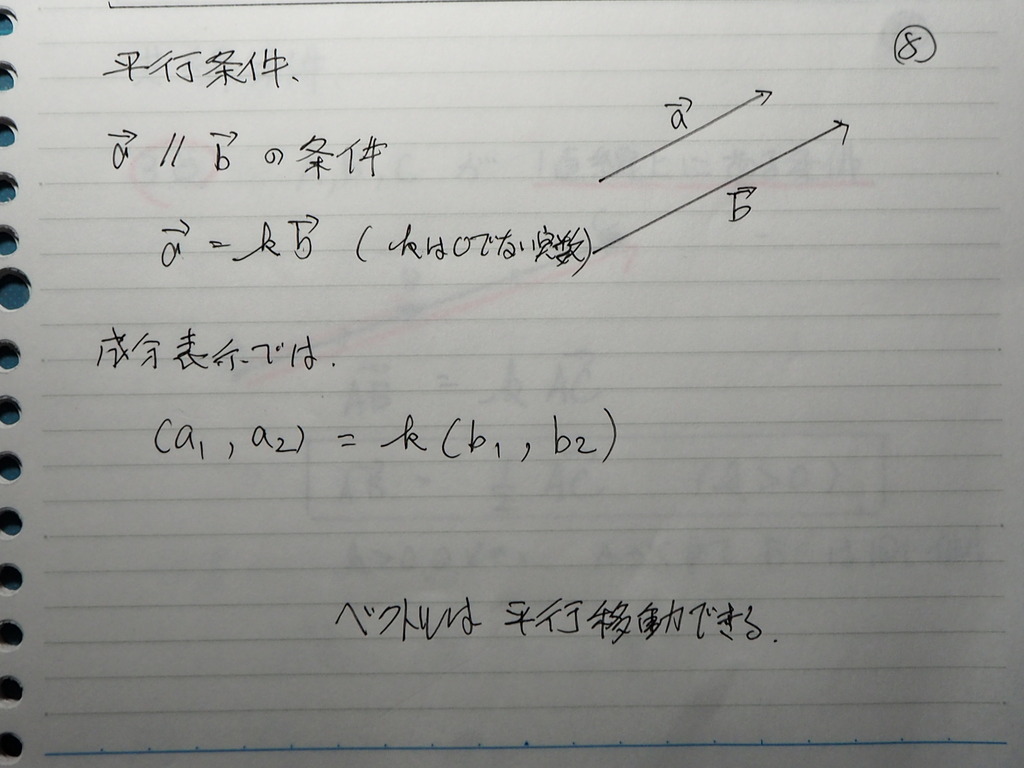 ⑧
平行条件、
a⃗ // b⃗ の条件
a⃗ = k b⃗ (kは0でない実数)
a⃗
b⃗
成分表示では.
(a₁, a₂) = k (b₁, b₂)
ベクトルは 平行移動できる.